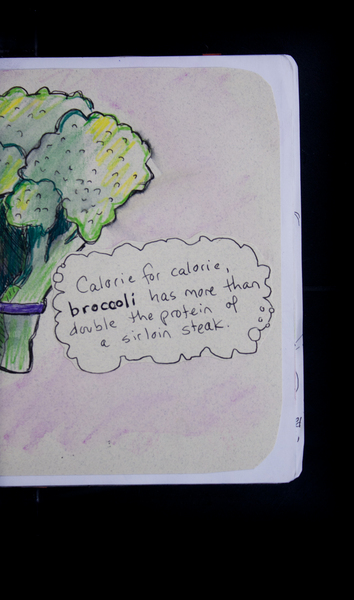 Calorie for calorie,
broccoli has more than
double the protein of
a sirloin steak.